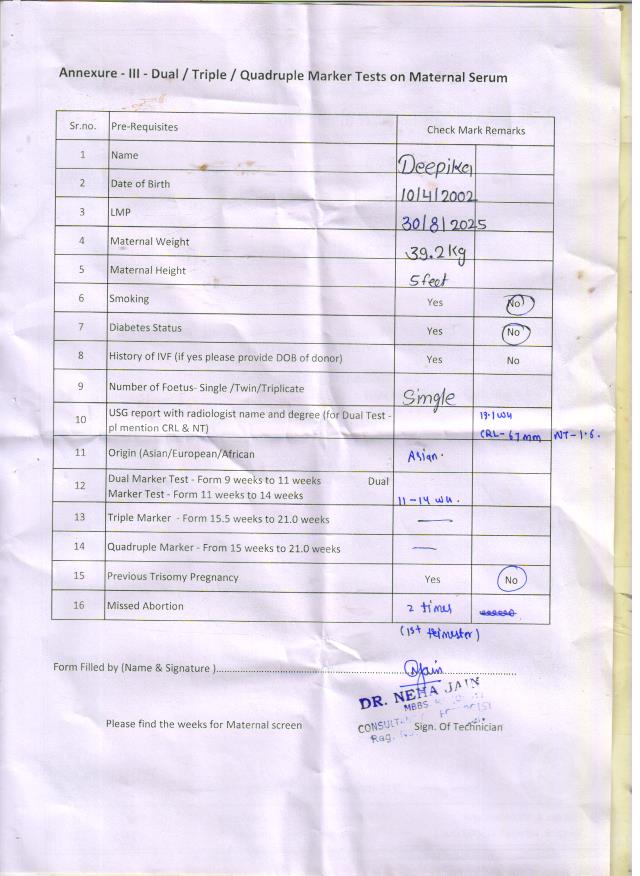 Annexure - III - Dual / Triple / Quadruple Marker Tests on Maternal Serum
Sr.no. Pre-Requisites Check Mark Remarks
1 Name Deepika
2 Date of Birth 10/4/2002
3 LMP 30/8/2025
4 Maternal Weight 39.2kg
5 Maternal Height 5feet
6 Smoking Yes No
7 Diabetes Status Yes No
8 History of IVF (if yes please provide DOB of donor) Yes No
9 Number of Foetus- Single /Twin/Triplicate Single
10 USG report with radiologist name and degree (for Dual Test -
pl mention CRL & NT)
CRL- 67mm NT-1.6.
11 Origin (Asian/European/African Asian.
12 Dual Marker Test - Form 9 weeks to 11 weeks Dual
Marker Test - Form 11 weeks to 14 weeks 11-14 wk.
13 Triple Marker - Form 15.5 weeks to 21.0 weeks —
14 Quadruple Marker - From 15 weeks to 21.0 weeks —
15 Previous Trisomy Pregnancy Yes No
16 Missed Abortion 2 times
(1st trimester)
Form Filled by (Name & Signature )........ Njain
DR. NEHA JAIN
MBBS
Please find the weeks for Maternal screen Sign. Of Technician